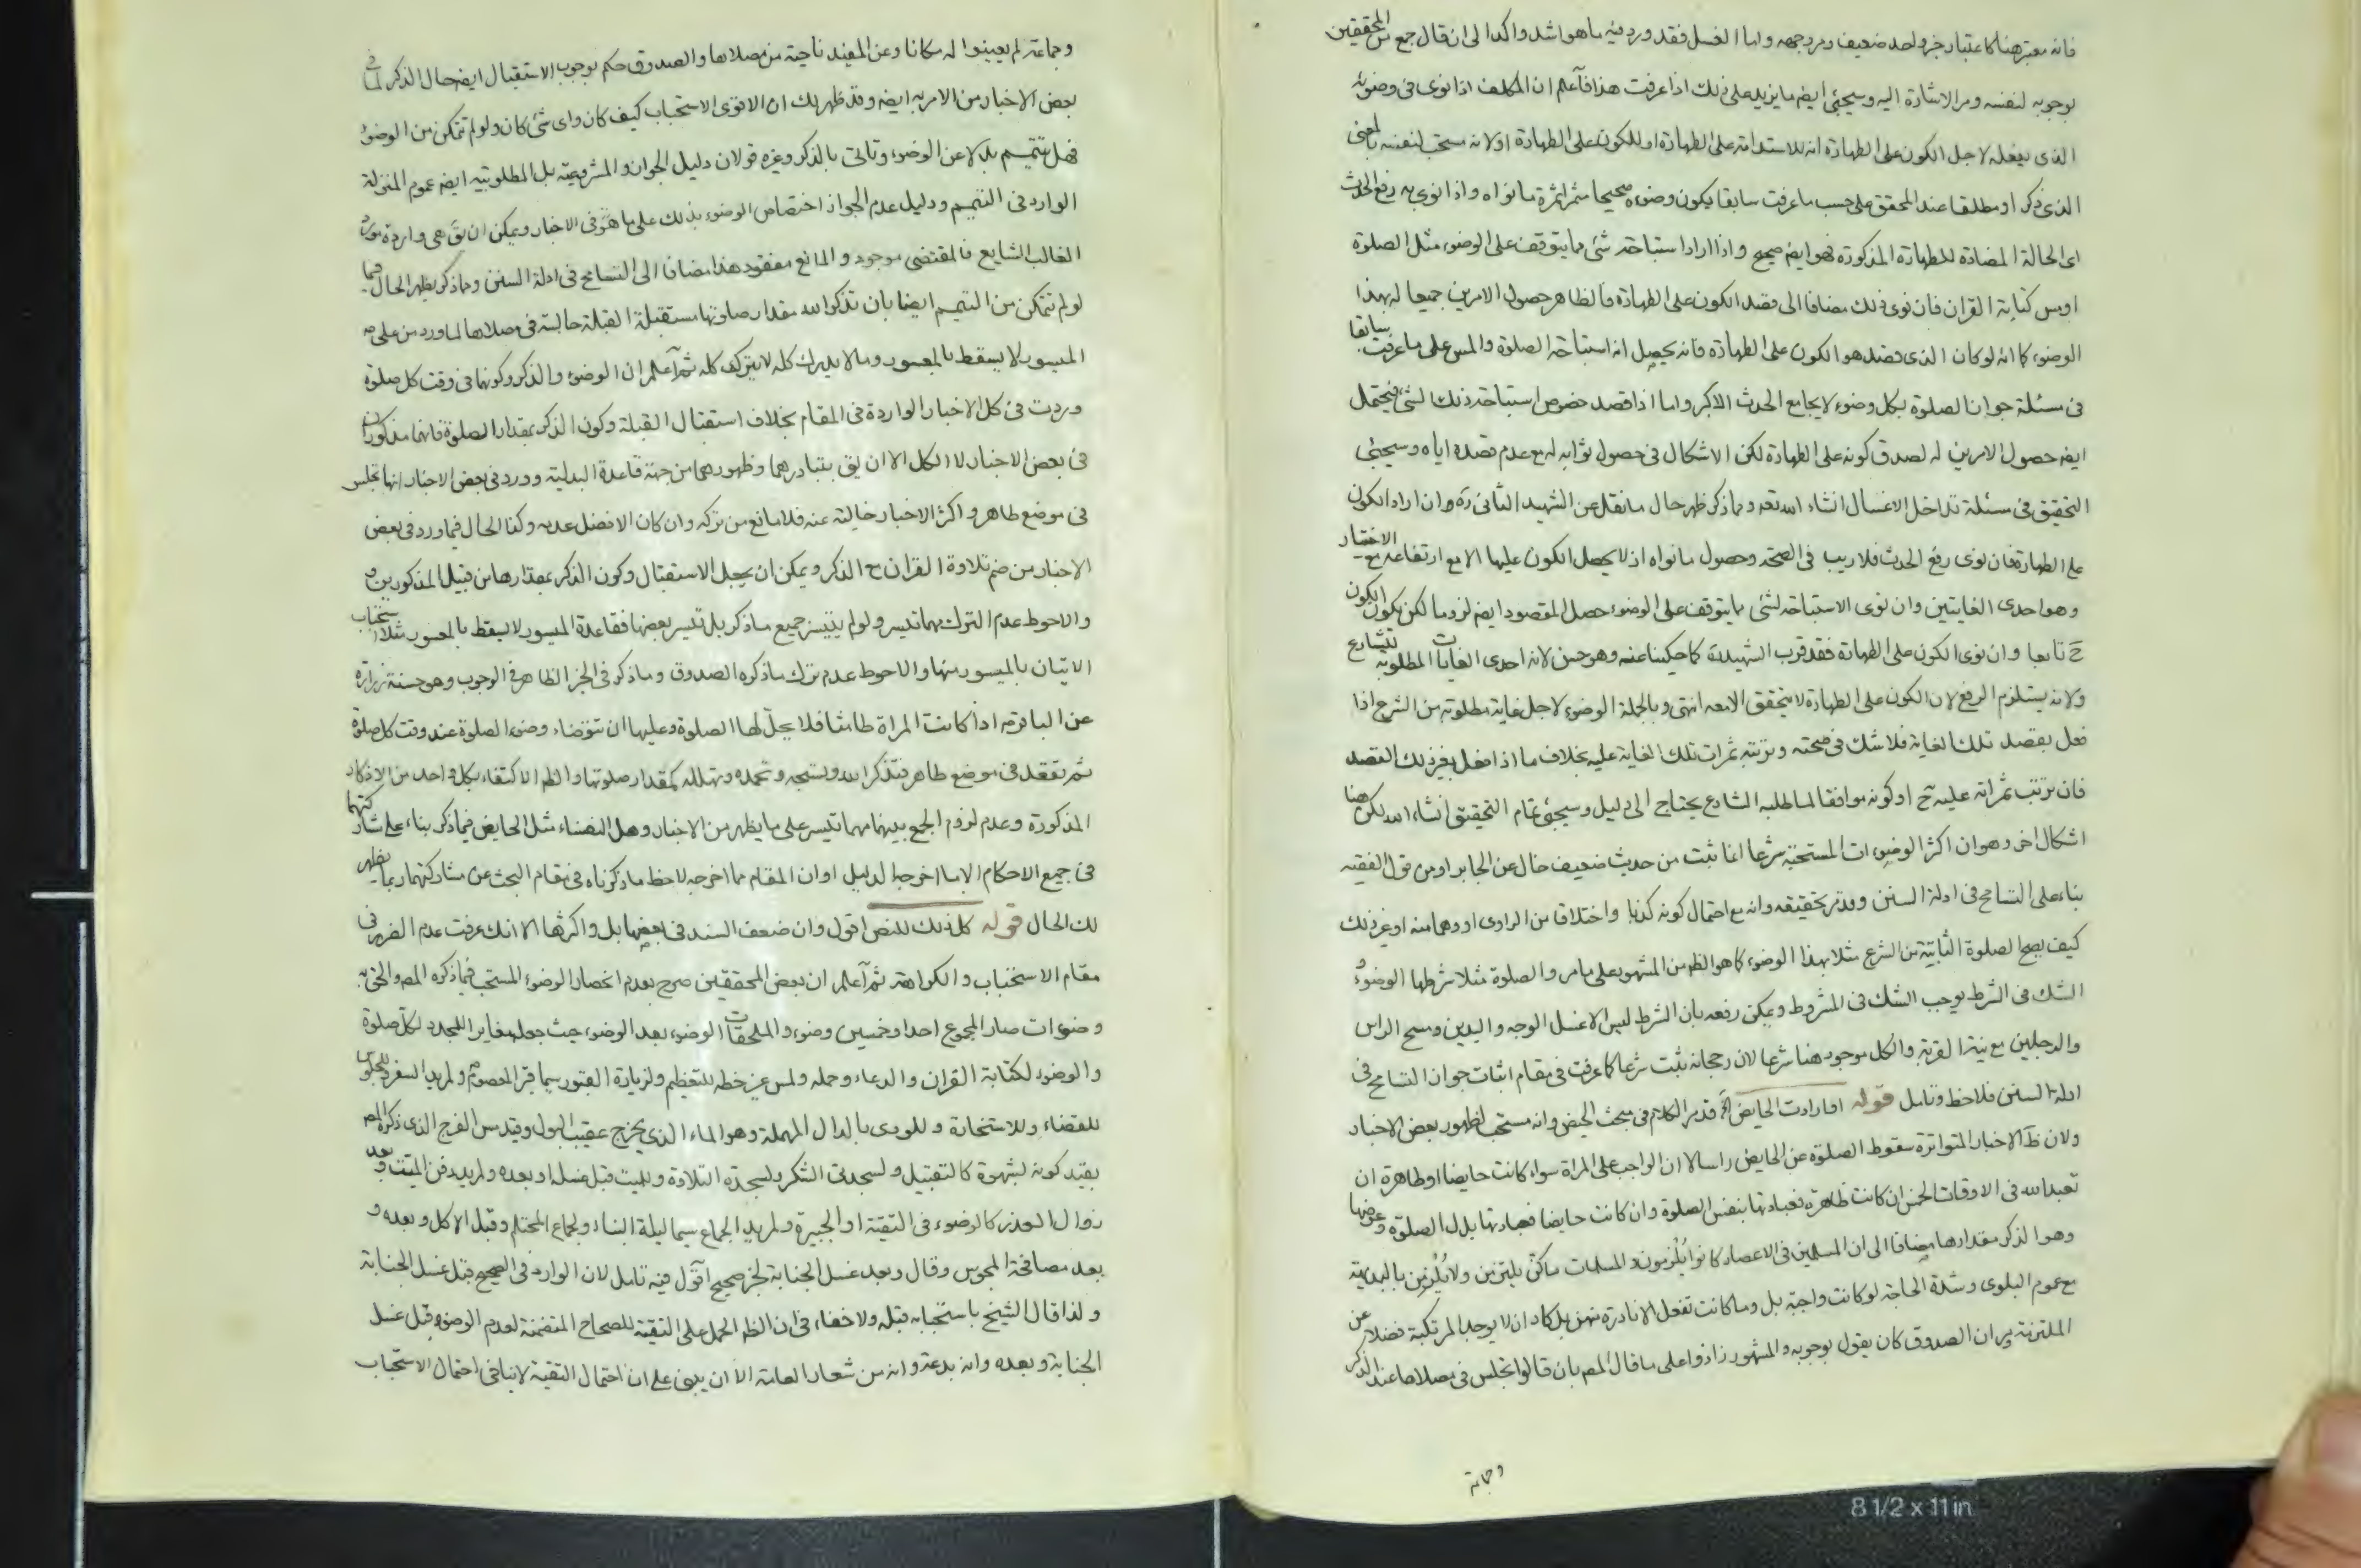 فانه معتبر هنا كاعتبار خبر واحد ضعيف ومر وجهه واما الغسل فقد ورد فيه ما هو اشد واكد الى ان قال جمع من المحققين
بوجوبه لنفسه ومر الاشارة اليه وسيجئ ايضا ما يزيد على ذلك اذا عرفت هذا فاعلم ان المكلف اذا نوى في وضوئه
الذى يفعله لاجل الكون على الطهارة انه للاستدامة على الطهارة او للكون على الطهارة او لانه مستحب لنفسه بالمعنى
الذى ذكر او مطلقا عند المحقق على حسب ما عرفت سابقا يكون وضوءه صحيحا مثمرا ثمرة ما نواه واذا نوى به رفع الحدث
اى الحالة المضادة للطهارة المذكورة فهو ايضا صحيح واذا اراد استباحة شئ مما يتوقف على الوضوء مثل الصلوة
او مس كتابة القران فان نوى ذلك مضافا الى قصد الكون على الطهارة فالظاهر حصول الامرين جميعا له بهذا
الوضوء كما انه لو كان الذى قصد هو الكون على الطهارة فانه يحصل له استباحة الصلوة والمس على ما عرفت سابقا
فى مسئلة جواز الصلوة بكل وضوء لا يجامع الحدث الاكبر واما اذا قصد خصوص استباحة ذلك الشئ فيحتمل
ايضا حصول الامرين له لصدق كونه على الطهارة لكن الاشكال فى حصول ثوابه له مع عدم قصده اياه وسيجئ
التحقيق فى مسئلة تداخل الاغسال انشاء الله تعه ومما ذكر ظهر حال ما نقل عن الشهيد الثانى ره وان اراد الكون
على الطهارة فان نوى رفع الحدث فلا ريب فى الصحة وحصول ما نواه اذ لا يحصل الكون عليها الا مع ارتفاعه مع الاختيار
وهو احدى الغايتين وان نوى الاستباحة لشئ مما يتوقف على الوضوء حصل المقصود ايضا لزوما لكن يكون الكون
ح تابعا وان نوى الكون على الطهارة فقد قرب الشهيد كما حكيناعنه وهو حسن لانه احدى الغايات المطلوبة للشارع
ولانه يستلزم الرفع لان الكون على الطهارة لا يتحقق الا معه انتهى وبالجملة الوضوء لاجل غاية مطلوبة من الشرع اذا
فعل بقصد تلك الغاية فلا شك فى صحته وترتبه ثمرات تلك الغاية عليه بخلاف ما اذا فعل بغير ذلك القصد
فان ترتب ثمراته عليه ح او كونه موافقا لما طلبه الشارع يحتاج الى دليل وسيجئ تمام التحقيق انشاء الله لكن هنا
اشكال اخر وهو ان اكثر الوضوءات المستحبة شرعا انما ثبت من حديث ضعيف خال عن الجابر او من قول الفقيه
بناء على التسامح فى ادلة السنن وقد مر تحقيقه وانه مع احتمال كونه كذبا واختلاقا من الراوى او وهما منه او غير ذلك
كيف يصح الصلوة الثابتة من الشرع مثلا بهذا الوضوء كما هو الظم من المشهور على ما مر والصلوة مثلا شرطها الوضوء و
الشك فى الشرط يوجب الشك فى المشروط ويمكن رفعه بان الشرط ليس الا غسل الوجه واليدين ومسح الراس
والرجلين مع نية القربة والكل موجود هنا شرعا لان رجحانه ثبت شرعا كما عرفت فى مقام اثبات جواز التسامح فى
ادلة السنن فلاحظ وتامل قوله اذا ارادت الحايض الخ قد مر الكلام فى مبحث الحيض وانه مستحب لظهور بعض الاخبار
ولان ظ الاخبار المتواترة سقوط الصلوة عن الحايض راسا لا ان الواجب على المراة سواء كانت حايضا او طاهرة ان
تعبد الله فى الاوقات الخمس ان كانت طاهرة فعبادتها بنفس الصلوة وان كانت حايضا فعبادتها بدل الصلوة وعوضها
وهو الذكر مقدارها مضافا الى ان المسلمين فى الاعصار كانوا يلزمون والمسلمات ماكن يلتزمن ولا يلزمن بالبدية
مع عموم البلوى وشدة الحاجة لو كانت واجبة بل وما كانت تفعل الا نادرة منهن بل كاد ان لا يوجد المرتكبة فضلا عن
الملتزمة ان الصدوق كان يقول بوجوبه والمشهور زادوا على ما قال المصم بان قالوا تجلس فى مصلاها عند الذكر
وجماعة
وجماعة لم يعينوا له مكانا وعن المفيد ناحية من مصلاها والصدوق حكم بوجوب الاستقبال ايضا حال الذكر لما فى
بعض الاخبار من الامر به ايضا وقد ظهر لك ان الاقوى الاستحباب كيف كان واى شئ كان ولو لم تتمكن من الوضوء
فهل تتيمم بدلا عن الوضوء وتاتى بالذكر وغيره قولان دليل الجواز والمشروعية بل المطلوبية ايضا عموم المنزلة
الوارد فى التيمم ودليل عدم الجواز اختصاص الوضوء بذلك على ما هو فى الاخبار ويمكن ان يق هى واردة مورد
الغالب الشايع فالمقتضى موجود والمانع مفقود هذا مضافا الى التسامح فى ادلة السنن ومما ذكر يظهر الحال فيما
لو لم تتمكن من التيمم ايضا بان تذكر الله مقدار صلوتها مستقبلة القبلة جالسة فى مصلاها لما ورد من على ع
الميسور لا يسقط بالمعسور وما لا يدرك كله لا يترك كله ثم اعلم ان الوضوء والذكر وكونها فى وقت كل صلوة
وردت فى كل الاخبار الواردة فى المقام بخلاف استقبال القبلة وكون الذكر بمقدار الصلوة فانهما مذكوران
فى بعض الاخبار لا الكل الا ان يق بتبادرهما وظهورهما من جهة قاعدة البدلية وورد فى بعض الاخبار انها تجلس
فى موضع طاهر واكثر الاخبار خالية عنه فلا مانع من تركه وان كان الافضل عدمه وكذا الحال فيما ورد فى بعض
الاخبار من ضم تلاوة القران مع الذكر ويمكن ان يجعل الاستقبال وكون الذكر بمقدارها من قبيل المذكورين و
والاحوط عدم الترك مهما تيسر ولو لم يتيسر جميع ما ذكر بل تيسر بعضها فقاعدة الميسور لا يسقط بالمعسور مثلا استحباب
الاتيان بالميسور منها والاحوط عدم ترك ما ذكره الصدوق وما ذكر فى الخبر الظاهر فى الوجوب وهو حسنة زرارة
عن الباقر ع اذا كانت المراة طامثا فلا يحل لها الصلوة وعليها ان تتوضاء وضوء الصلوة عند وقت كل صلوة
ثم تقعد فى موضع طاهر فتذكر الله وتسبحه وتحمده وتهلله كمقدار صلوتها والظم الاكتفاء بكل واحد من الاذكار
المذكورة وعدم لزوم الجمع بينهما مهما تيسر على ما يظهر من الاخبار وهل النفساء مثل الحايض فيما ذكر بناء على مشاركتهما
فى جميع الاحكام الا ما اخرجه الدليل او ان المقام مما اخرجه لاحظ ما ذكرناه فى مقام البحث عن مشاركتهما ربما يظهر
لك الحال قوله كل ذلك للنص اقول وان ضعف السند فى بعضها بل واكثرها الا انك عرفت عدم الضرر فى
مقام الاستحباب والكراهة ثم اعلم ان بعض المحققين صرح بعدم انحصار الوضوء المستحب فيما ذكره المصم والحق به
وضوءات صار المجموع احدا وخمسين وضوء والملحقات الوضوء بعد الوضوء حيث جعله مغايرا للمجدد لكل صلوة
والوضوء لكتابة القران والدعاء وحمله ولمس غير خطه للتعظيم ولزيارة القبور سيما قبر المعصوم ع ولمريد السفر وللجلوس
للقضاء وللاستخارة وللودى بالدال المهملة وهو الماء الذى يخرج عقيب البول وقيد مس الفرج الذى ذكره المصم
بقيد كونه لشهوة كالتقبيل ولسجدتى الشكر ولسجدة التلاوة وللميت قبل غسله او بعده ولمريد دفن الميت وبعد
زوال العذر كالوضوء فى التقية او الجبيرة ولمريد الجماع سيما ليلة البناء ولجماع المحتلم وقبل الاكل وبعده و
بعد مصافحة المجوس وقال وبعد غسل الجنابة لخبر صحيح اقول فيه تامل لان الوارد فى الصحيح قبل غسل الجنابة
ولذا قال الشيخ باستحبابه قبله ولا خفاء فى ان الظم الحمل على التقية للصحاح المتضمنة لعدم الوضوء قبل غسل
الجنابة وبعده وانه بدعة وانه من شعار العامة الا ان يبنى على ان احتمال التقية لا ينافى احتمال الاستحباب
8 1/2 x 11 in